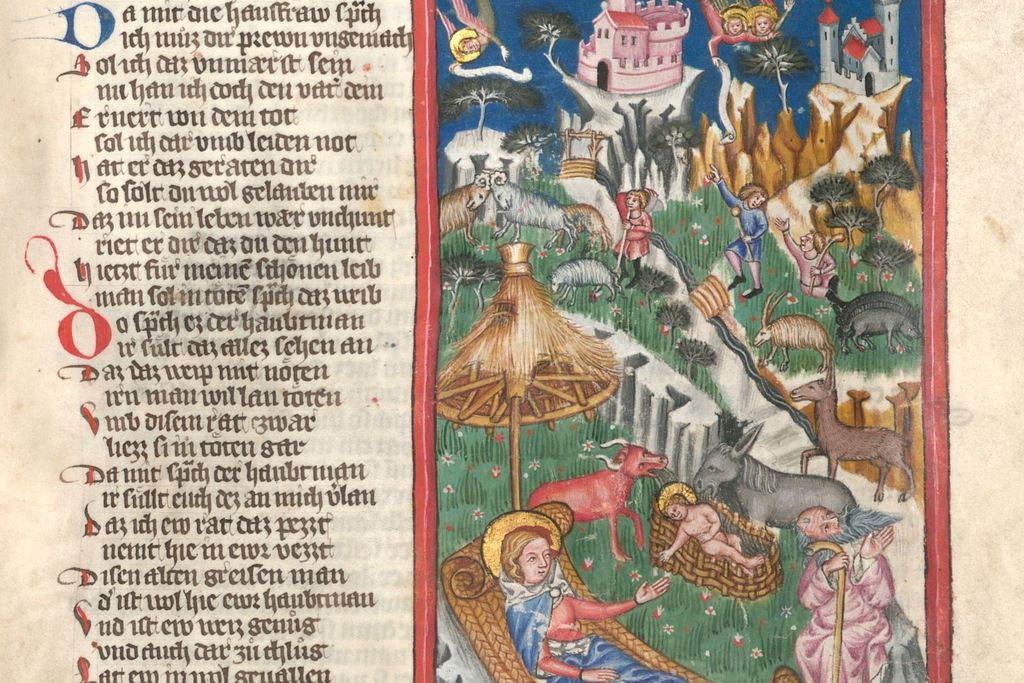 Da mit die hausfraw sp̄ch
ich muͤz dir prewn ungemach
Sol ich daz vnmaerst sein
nu han ich doch den vat̄ dein
Ernert von dem tot
sol ich dar vmb leiden not
hat er daz geraten dir
so solt du wol gelauben mir
Daz im sein leben waer vnchunt
riet er dir daz du den hunt
hiezt fur meinē schonen leib
man sol in totē sp̄ch daz weib
Do sp̄ch ez der haubtman
ir sult daz allez sehen an
Daz daz weip mit noten
irn man wil lan toten
Vmb disem rat zwar
liezz si in toten gar
Da mit sp̄ch der haubtman
ir sullt euch dez an mich v̄lan
Daz ich ew rat daz pezzt
nemt hie in ewr vezzt
Disen alten greisen man
d' ist wol hie ewr haubtman
Vnd ist ew weiz genuͦg
vnd auch dar zuͦ chluͦg
Lat ew in wol geuallen